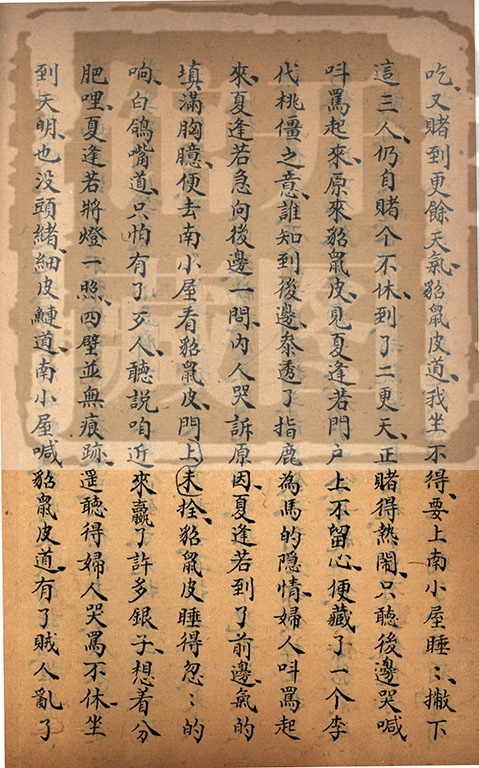 吃、又賭到更餘天氣、貂鼠皮道、我坐不得、要上南小屋睡〻、撇下
這三人、仍自賭个不休、到了二更天、正賭得熱鬧、只聽後邊哭喊
呌罵起來、原來貂鼠皮、見夏逢若門户上不留心、便藏了一个李
代桃僵之意、誰知到後邊、叅透了指鹿為馬的隐情、婦人呌罵起
來、夏逢若急向後邊一問、内人哭訴原因、夏逢若到了前邊、氣的
填滿胸臆、便去南小屋看貂鼠皮、門上未拴、貂鼠皮睡得忽〻的
响、白鴿嘴道、只怕有了歹人、聽說咱近來贏了許多銀子、想着分
肥哩、夏逢若將燈一照、四壁並無痕跡、遥聽得婦人哭罵不休、坐
到天明、也没頭緒、細皮鰱道、南小屋喊貂鼠皮道、有了賊人亂了